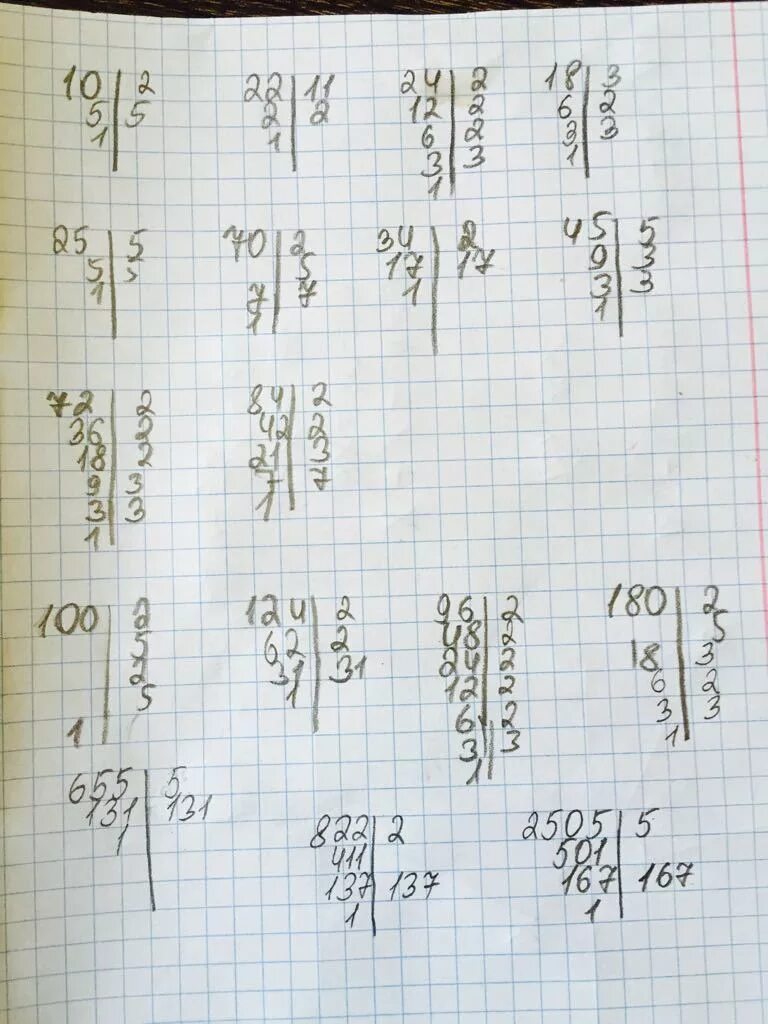 10 2
5 5
1
22 11
2 2
1
24 2
12 2
6 2
3 3
1
18 3
6 2
3 3
1
25 5
5
1
70 2
5
7 7
1
34 2
17 17
1
45 5
9 3
3 3
1
72 2
36 2
18 2
9 3
3 3
1
84 2
42 2
21 3
7 7
1
100 2
5
2
5
1
124 2
62 2
31 31
1
96 2
48 2
24 2
12 2
6 2
3 3
1
180 2
5
18 3
6 2
3 3
1
655 5
131 131
1
822 2
411
137 137
1
2505 5
501
167 167
1